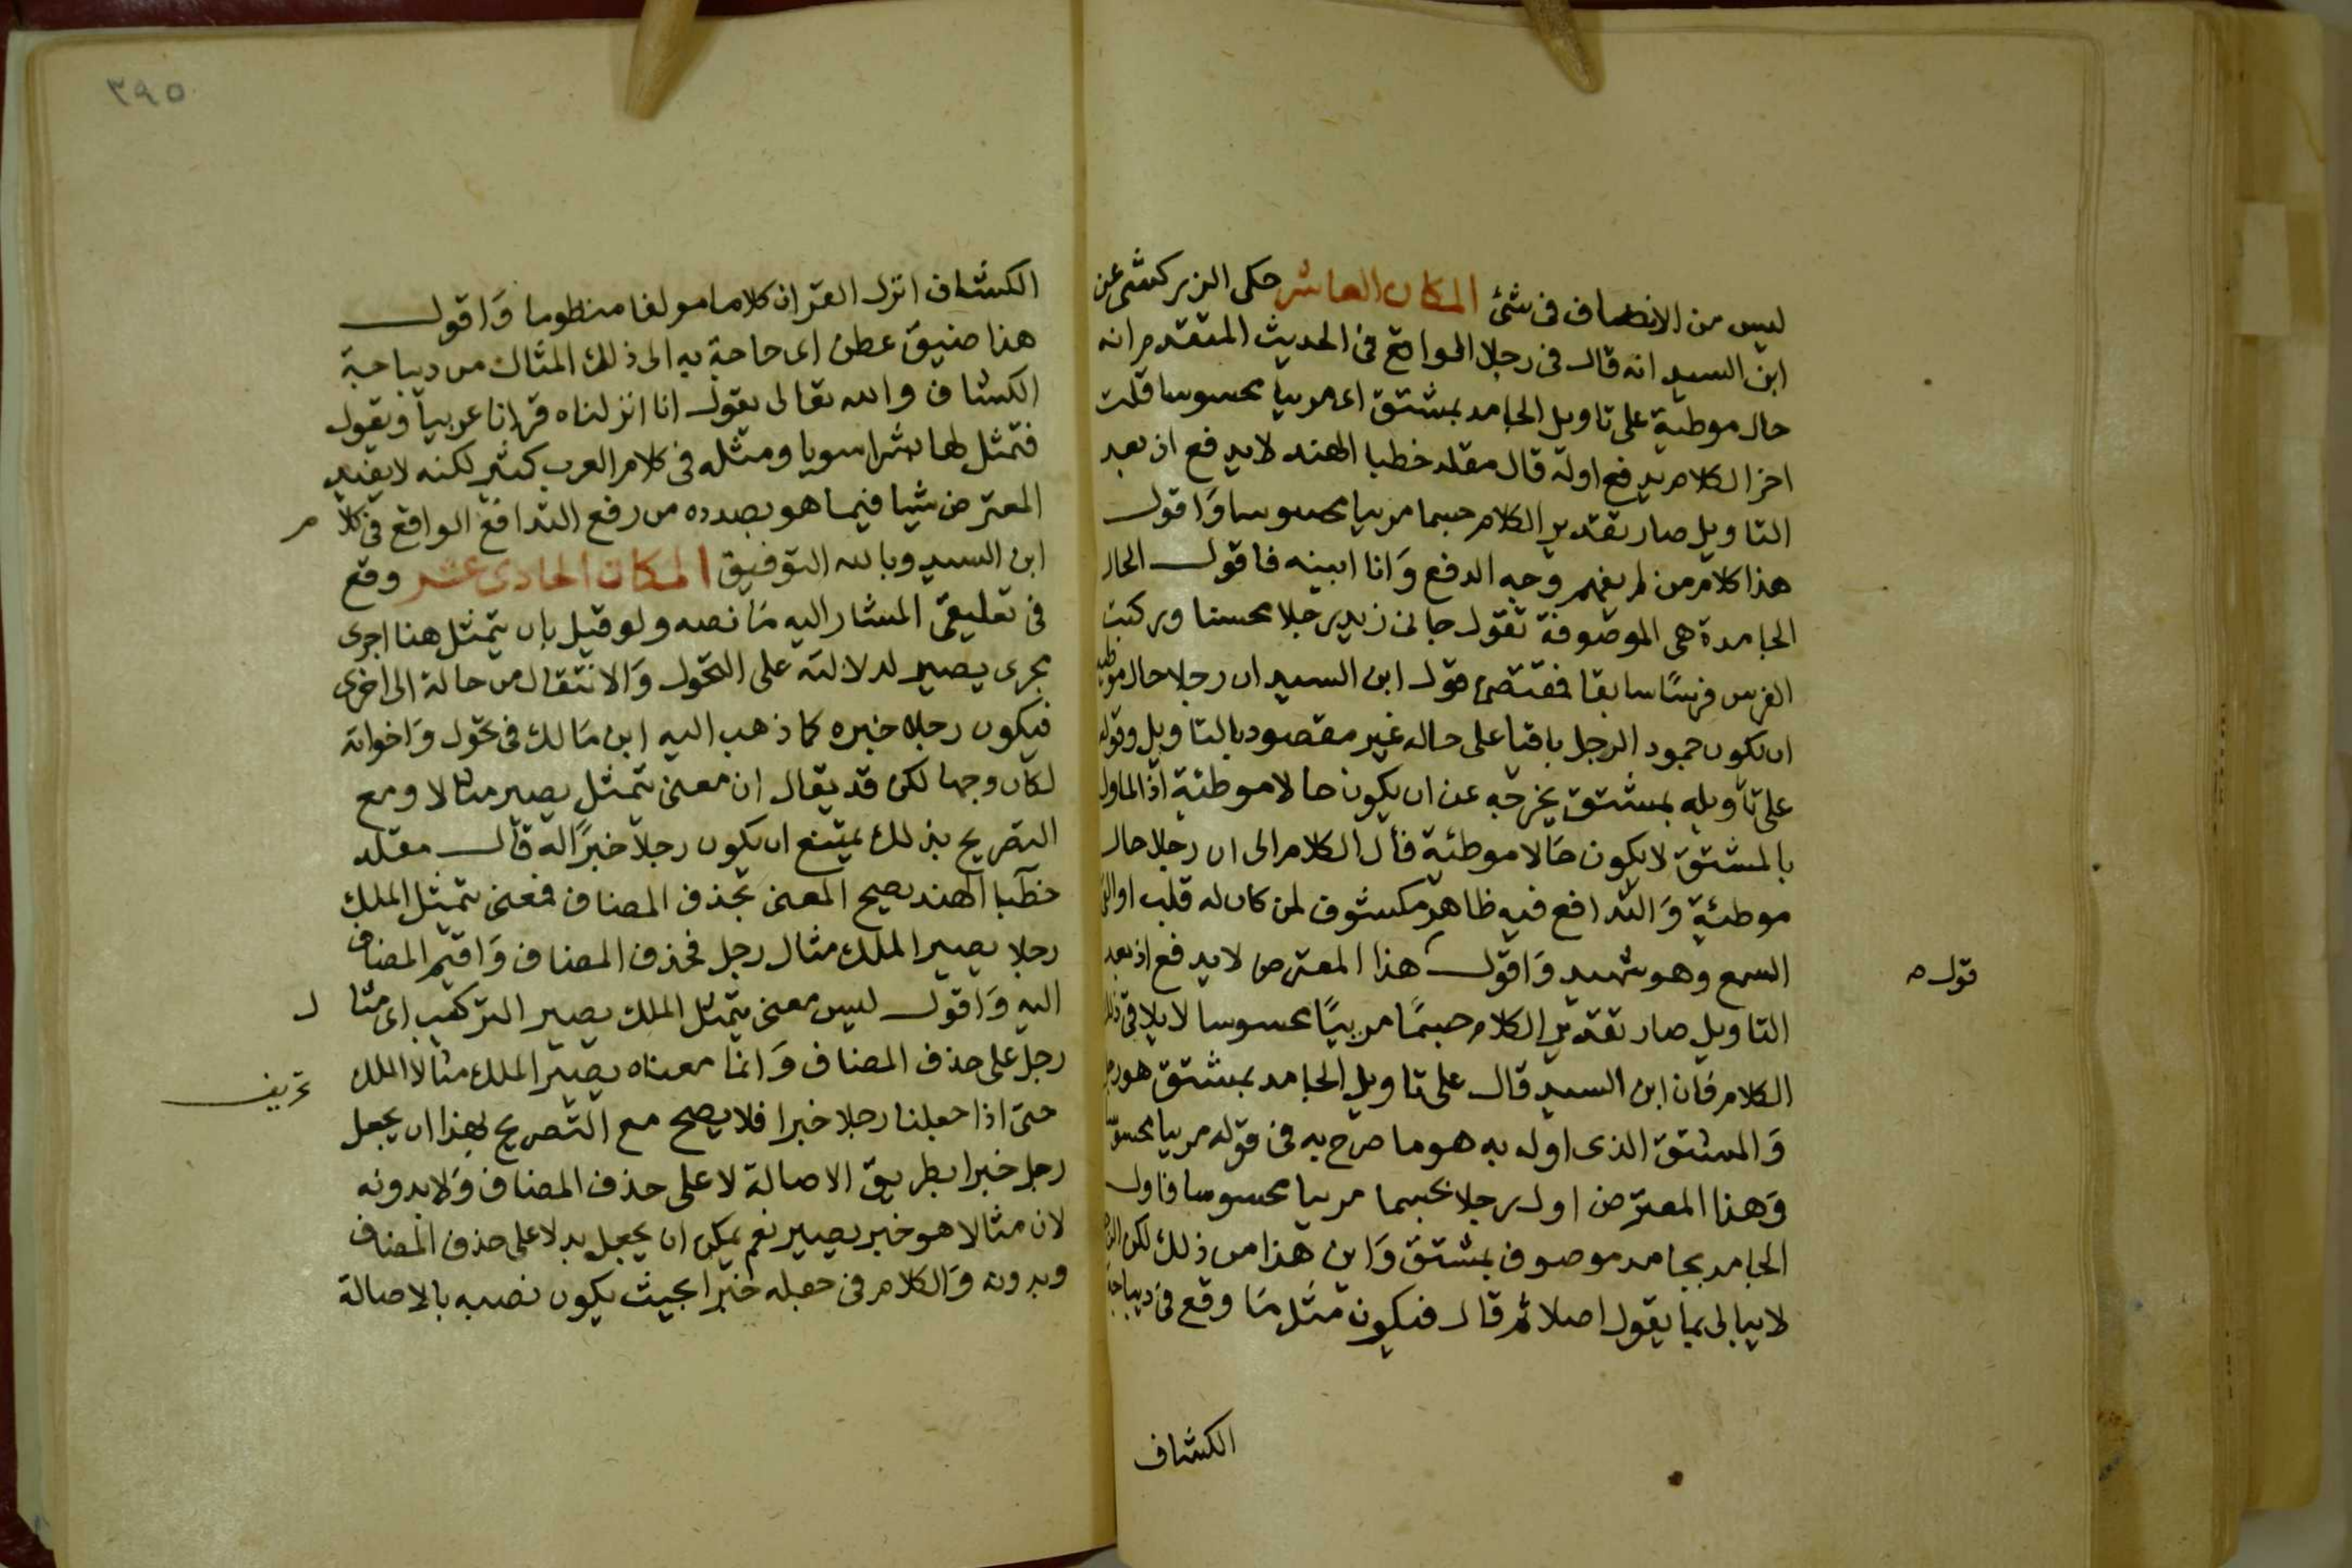 ليس من الانصاف فى شئ المكان العاشر حكى الزركشى عن
ابن السيد انه قال فى رجلا الواقع فى الحديث المتقدم انه
حال موطية على تاويل الجامد بمشتق اى مربيا محسوسا قلت
اخر الكلام يدفع اوله قال مقلد خطبا الهند لا يدفع اذ بعد
التاويل صار تقدير الكلام جسما مربيا محسوسا وَاقول
هذا كلام من لم يفهم وجه الدفع وَانا ابينه فاقول الحال
الجامدة هى الموصوفة تقول جانى زيد رجلا محسنا وركبت
الفرس فرسًا سابقا فمقتضى قول ابن السيد ان رجلا حال موطية
ان يكون جمود الرجل باقيا على حاله غير مقصود بالتاويل وقوله
على تاويله بمشتق يخرجه عن ان يكون حالا موطئة اذ الماول
بالمشتق لا يكون حَالا موطئة فأل الكلام الى ان رجلا حال
موطئة وَالتدافع فيه ظاهر مكشوف لمن كان له قلب او القى
السمع وهو شهيد وَاقول هذا المعترض لا يدفع اذ بعد
قوله
التاويل صار تقدير الكلام جسمًا مربيًا محسوسا لا يلاقى ذلك
الكلام فان ابن السيد قال على تاويل الجامد بمشتق هو رجل
وَالمشتق الذى اوله به هو ما صرح به فى قوله مربيا محسوسا
وَهذا المعترض اول رجلا بجسما مربيا محسوسا فاول
الجامد بجامد موصوف بمشتق وَاين هذا من ذلك لكن
لا يبالى بما يقول اصلا ثم قال فيكون مثل مَا وقع فى ديباجة
الكشاف
٣٩٥
الكشاف انزل القران كلاما مولفا منظوما وَاقول
هذا ضيق عطن اى حاجة به الى ذلك المثال من ديباجة
الكشاف والله تعالى يقول انا انزلناه قرانا عربيا ويقول
فتمثل لها بشرا سويا ومثله فى كلام العرب كثير لكنه لا يفيد
المعترض شيا فيما هو بصدده من رفع التدافع الواقع فى كلام
ابن السيد وبالله التوفيق المكان الحادى عشر وقع
فى تعليقى المشار اليه مَا نصه ولو قيل بان يتمثل هنا اجرى
مجرى يصير لدلالته على التحول وَالانتقال من حالة الى اخرى
فيكون رجلا خبره كما ذهب اليه ابن مَالك فى تحول وَاخواته
لكان وجها لكن قد يقال ان معنى يتمثل يصير مثالا ومع
التصريح بذلك يمتنع ان يكون رجلا خبرًا له قال مقلد
خطبا الهند يصح المعنى بحذف المضاف فمعنى يتمثل الملك
رجلا يصير الملك مثال رجل فحذف المضاف وَاقيم المضاف
اليه وَاقول ليس معنى يتمثل الملك يصير التركيب اى مثال
رجل على حذف المضاف وَانما معناه يصير الملك مثالا الملك
تحريف
حتى اذا جعلنا رجلا خبرا فلا يصح مع التصريح بهذا ان يجعل
رجل خبرا بطريق الاصالة لا على حذف المضاف وَلا بدونه
لان مثالا هو خبر يصير نعم يمكن ان يجعل بدلا على حذف المضاف
وبدونه وَالكلام فى جعله خبرا بحيث يكون نصبه بالاصالة